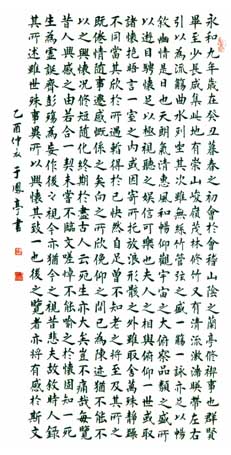 永和九年歲在癸丑暮春之初會於會稽山陰之蘭亭修禊事也群賢
畢至少長咸集此地有崇山峻嶺茂林修竹又有清流激湍映帶左右
引以為流觴曲水列坐其次雖無絲竹管弦之盛一觴一詠亦足以暢
敘幽情是日也天朗氣清惠風和暢仰觀宇宙之大俯察品類之盛所
以遊目騁懷足以極視聽之娛信可樂也夫人之相與俯仰一世或取
諸懷抱晤言一室之內或因寄所託放浪形骸之外雖取舍萬殊靜躁
不同當其欣於所遇暫得於己快然自足曾不知老之將至及其所之
既倦情隨事遷感慨係之矣向之所欣俛仰之間已為陳迹猶不能不
以之興懷況修短隨化終期於盡古人云死生亦大矣豈不痛哉每覽
昔人興感之由若合一契未嘗不臨文嗟悼不能喻之於懷固知一死
生為虛誕齊彭殤為妄作後之視今亦猶今之視昔悲夫故敘時人錄
其所述雖世殊事異所以興懷其致一也後之覽者亦將有感於斯文
乙酉仲秋于鳳亭書